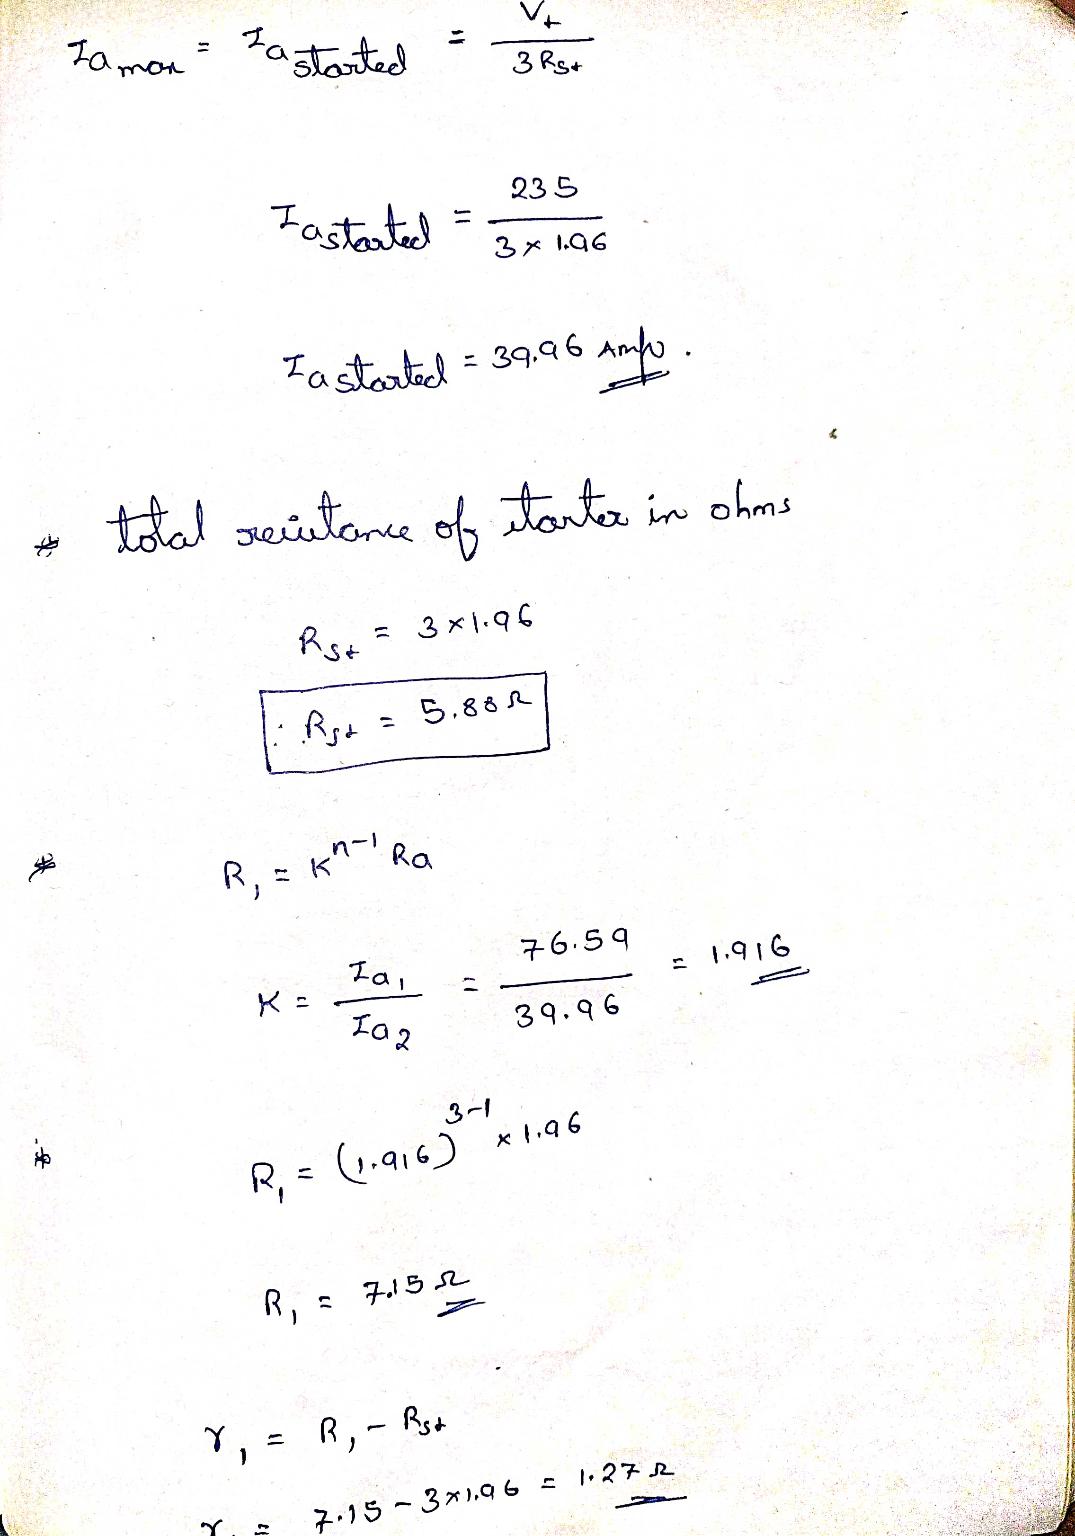 Ia max = Ia started = Vt / 3 Rst
Ia started = 235 / 3 × 1.96
Ia started = 39.96 Amp.
* total resistance of starter in ohms
Rst = 3 × 1.96
∴ Rst = 5.88 Ω
* R1 = K^(n-1) Ra
K = Ia1 / Ia2 = 76.59 / 39.96 = 1.916
R1 = (1.916)^(3-1) × 1.96
R1 = 7.15 Ω
r1 = R1 - Rst
r1 = 7.15 - 3×1.96 = 1.27 Ω